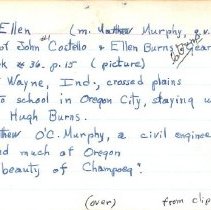 Ellen (m. Matthew Murphy, q.v.
of John #1 Costello & Ellen Burns
k # 36. p. 15 (picture)
Wayne, Ind., crossed plains
to school in Oregon City, staying w
Hugh Burns.
thew O'C. Murphy, a civil enginee
ed much at Oregon
beauty of Champoeg".
(over) from clip